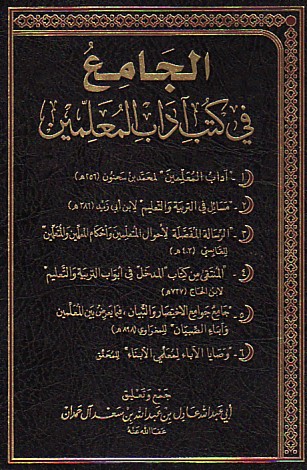 الجامع
في كتب آداب المعلمين
١- آداب المعلمين" لمحمد بن سحنون (٢٥٦هـ)
٢- مسائل في التربية والتعليم" لابن أبي زيد (٣٨٦هـ)
٣- الرسالة المفصلة لأحوال المتعلمين وأحكام المعلمين والمتعلمين
للقابسي (٤٠٣هـ)
٤- "المنتقى من كتاب "المدخل في أبواب التربية والتعليم"
لابن الحاج (٧٣٧هـ)
٥- جامع جوامع الاختصار والتبيان، فيما يعرض بين المعلمين
وآباء الصبيان" للمغراوي (٨٩٨هـ)
٦- وصايا الآباء لمعلمي الأبناء" للمحقق
جمع وتعليق
أبي عبد الله عادل بن عبد الله بن سعد آل حمدان
عفا الله عنه